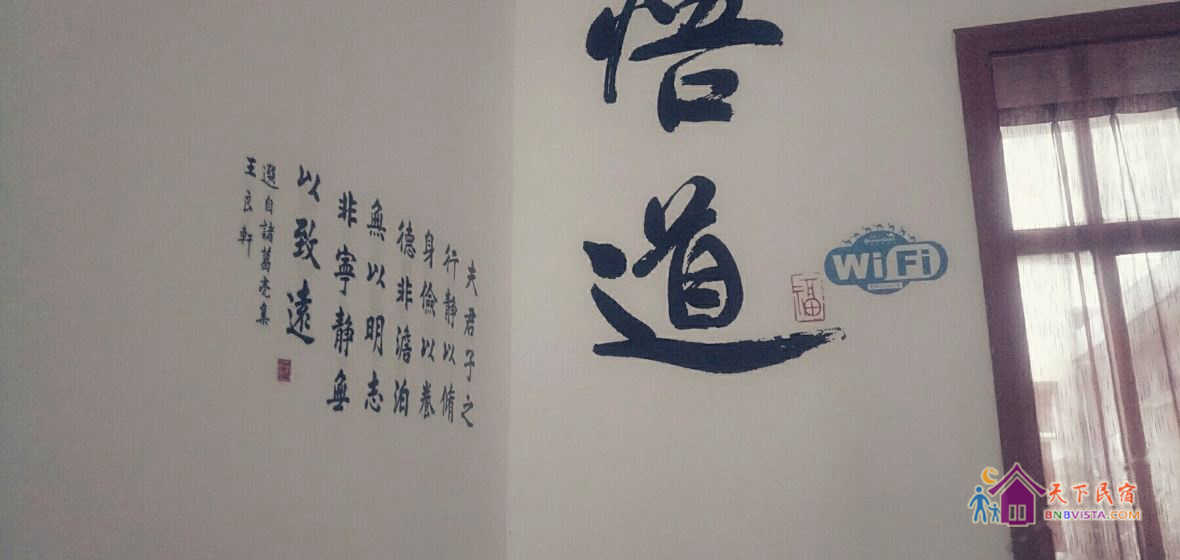 悟道
福
WiFi
夫君子之
行静以脩
身儉以養
德非澹泊
無以明志
非寧静無
以致遠
選自諸葛亮集
王良軒
天下民宿
BNBVISTA.COM